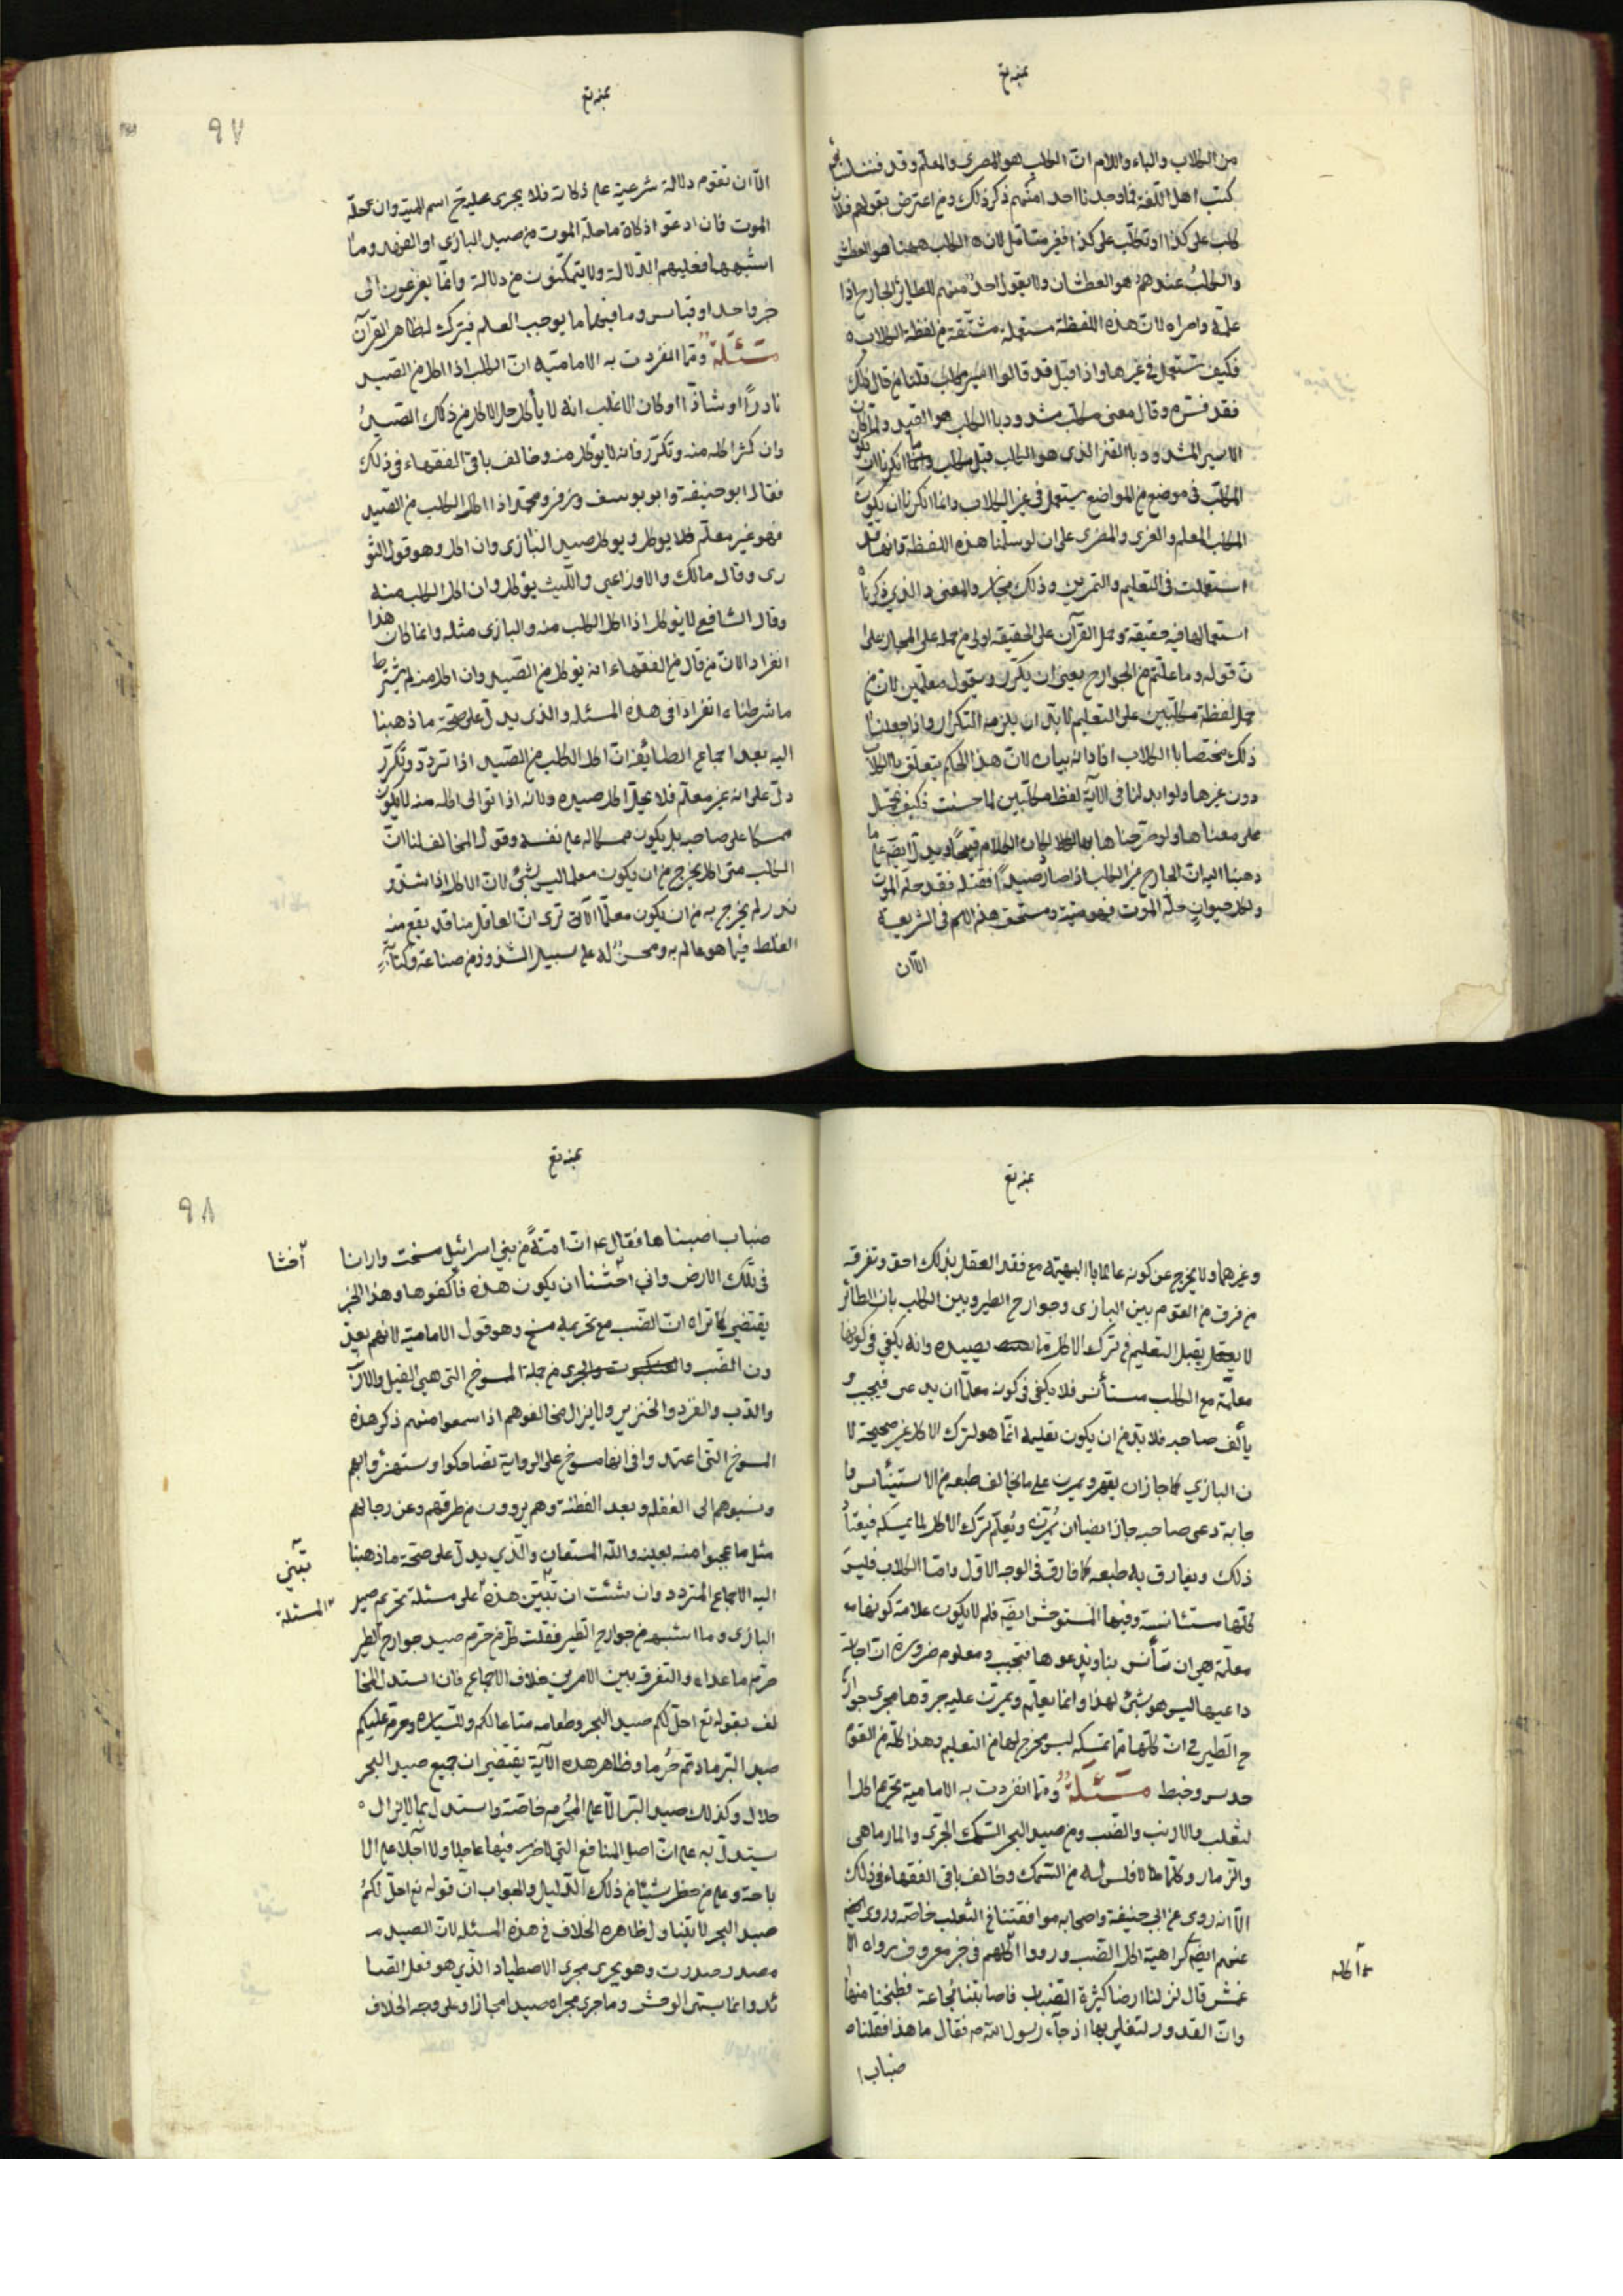 من الكلاب والباء واللام ان الكلب هو المضرى والمعلم وقد فتشنا
كتب اهل اللغة فما وجدنا احدا منهم ذكر ذلك ومن اعترض بقولهم فلان
كلب على كذا او تكلب على كذا فغير متأمل لان الكلب ههنا هو العطش
والكلب عندهم هو العطشان ولا يقول احد منهم للطاير الجارح اذا
علمه واضراه لان هذه اللفظة مستعملة مشتقة من لفظة الكلاب
فكيف تستعمل في غيرها واذا قيل قد قالوا اسير مكلب قلنا من قال ذلك
فقد فسره وقال معنى مكلب مشدود بالكلب هو القيد ولما كان
الاسير المشدود بالقد الذي هو الكلب قيل مكلب وما انكرنا ان يكون
المكلب في موضع من المواضع يستعمل في غير الكلاب وانما انكرنا ان يكون
المكلب المعلم والمغرى والمضرى على ان لو سلمنا هذه اللفظة فانها قد
استعملت في التعليم والتمرين وذلك مجاز والمعنى الذي ذكرناه
استعمالها فيه حقيقة وحمل القرآن على الحقيقة اولى من حمله على المجاز على ا
ن قوله وما علمتم من الجوارح يغني ان يكرر ويقول معلمين لان من
حمل لفظة مكلبين على التعليم لا بد ان يلزمه التكرار واذا جعلنا
ذلك مختصا بالكلاب افاد انه بيان لان هذا الحكم يتعلق بالكلاب
دون غيرها ولو ابدلنا في الآية لفظ مكلبين لما حسنت فكيف تحمل
على معناها ولو صرحنا بها لكان الكلام قبيحا ويدل ايضا على ما
ذهبنا اليه ان الجارح غير الكلب اذا صار صيدا فقتله فقد حله الموت
وكل حيوان حله الموت فهو ميتة ومستحق هذه الاسم في الشريعة
الا ان
٩٧
الا ان تقوم دلالة شرعية على ذكاته فلا يجرى عليه ح اسم الميتة وان حله
الموت فان ادعوا ذكاة ما حله الموت من صيد البازى او الفهد وما
اشبهها فعليهم الدلالة ولا يتمكنون من دلالة وانما يفزعون الى
خبر واحد او قياس وما فيهما ما يوجب العلم فيترك لظاهر القرآن
مسئلة ومما انفردت به الامامية ان الكلب اذا اكل من الصيد
نادرا او شاذا وكان الاغلب انه لا يأكل حل الاكل من ذلك الصيد
وان كثر اكله منه وتكرر فانه لا يؤكل منه وخالف باقي الفقهاء في ذلك
فقال ابو حنيفة وابو يوسف وزفر ومحمد اذا اكل الكلب من الصيد
فهو غير معلم فلا يؤكل ويؤكل صيد البازى وان اكل وهو قول الثو
رى وقال مالك والاوزاعي والليث يؤكل وان اكل الكلب منه
وقال الشافعي لا يؤكل اذا اكل الكلب منه والبازى مثله وانما كان هذا
انفرادا لان من قال من الفقهاء انه يؤكل من الصيد وان اكل منه لم يشترط
ما شرطناه انفرادا في هذه المسئلة والذى يدل على صحة ما ذهبنا
اليه بعد اجماع الطائفة ان اكل الكلب من الصيد اذا تردد وتكرر
دل على انه غير معلم فلا يحل اكل صيده ولانه اذا توالى اكله منه لا يكون
ممسكا على صاحبه بل يكون ممسكا له على نفسه وقول المخالف لنا ان
الكلب متى اكل يخرج من ان يكون معلما ليس بشئ لان الاكل اذا شذ و
ندر لم يخرج به من ان يكون معلما الا ترى ان العاقل منا قد يقع منه
الغلط فيما هو عالم به ومحسن له على سبيل الشذوذ من صناعة وكتابة
وغيرهما ولا يخرج عن كونه عالما بالبهيمة مع فقد العقل بذلك احق وتفرقة
من فرق من القوم بين البازى وجوارح الطير وبين الكلب بان الطائر
لا يقبل التعليم في ترك الاكل مما يصيده وانه يكفي في كونها
معلمة مع الكلب مستأنس فلا يكفي في كونه معلما ان يدعى فيجيب و
يألف صاحبه فلا بد من ان يكون تعليمه انما هو لترك الاكل غير صحيحة لا
ن البازي كما جاز ان يقهر ويمرن على ما يخالف طبعه من الاستيناس وا
جابة دعى صاحبه جاز ايضا ان يمرن ويعلم ترك الاكل لما يمسكه فيعتاد
ذلك ويفارق به طبعه كما فارق في الوجه الاول واما الكلاب فليس
كلها مستأنسة وفيها المستوحش ايضا فلم لا يكون علامة كونها
معلمة هي ان تتأنس بنا وندعوها فتجيب ومعلوم ضرورة ان اجابة
داعيها ليس هو بشئ لهذا وانما يعلم وتمرن عليه جروها مجرى جوار
ح الطير في ان كلها مما تمسكه ليس بمخرج لها من التعليم وهذا كله من القوم
حدس وخبط مسئلة ومما انفردت به الامامية تحريم اكل ا
لثعلب والارنب والضب ومن صيد البحر السمك الجرى والمارماهى
والزمار وكلما لا فلس له من السمك وخالف باقي الفقهاء في ذلك
الا انه روى عن ابي حنيفة واصحابه موافقتنا في الثعلب خاصة وروى ايضا
عنهم ايضا كراهية اكل الضب ورووا كلهم في خبر معروف رواه الا
عمش قال نزلنا ارضا كثيرة الضباب فاصابتنا مجاعة فطبخنا منها
وان القدور لتغلي بها اذ جاء رسول الله ص فقال ما هذا فقلنا
ضباب ا
٩٨
ضباب اصبناها فقال ع ان امة من بني اسرائيل مسخت وارانا
في تلك الارض واني اخشنا ان يكون هذه فاكفوها وهذا الخبر
يقتضي كما تراه ان الضب مع تحريمه مسخ وهو قول الامامية لانهم يعد
دون الضب من جملة المسوخ التى هي الفيل والارنب
والدب والقرد والخنزير ولا يزال مخالفوهم اذا سمعوا منهم ذكر هذه
المسوخ التى اعتمدوا في انها مسوخ على الرواية تضاحكوا واستهزؤا بهم
ونسبوهم الى الغفلة وبعد الفطنة وهم يروون من طرقهم وعن رجالهم
مثل ما عجبوا منه بعينه والله المستعان والذي يدل على صحة ما ذهبنا
اليه الاجماع المتردد وان شئت ان تبين هذه على مسئلة تحريم صيد
البازى وما اشبهه من جوارح الطير فقلت كل من حرم صيد جوارح الطير
حرم ما عداه والتفرقة بين الامرين خلاف الاجماع فان استدل المخا
لف بقوله تع احل لكم صيد البحر وطعامه متاعا لكم وللسيارة وحرم عليكم
صيد البر ما دمتم حرما وظاهر هذه الآية يقتضى ان جميع صيد البحر
حلال وكذلك صيد البر الا على المحرم خاصة واستدل بما لا يزال
يستدل به على ان اصل المنافع التي لا ضرر فيها عاجلا ولا آجلا على الا
باحة وعلى من حظر شيئا من ذلك الدليل والجواب ان قوله تع احل لكم
صيد البحر لا يتناول ظاهره الخلاف في هذه المسئلة لان الصيد
مصدر صدرت وهو يجرى مجرى الاصطياد الذي هو فعل الصا
ئد وانما يسمى الوحش وما جرى مجراه صيدا مجازا وعلى وجه الخلاف